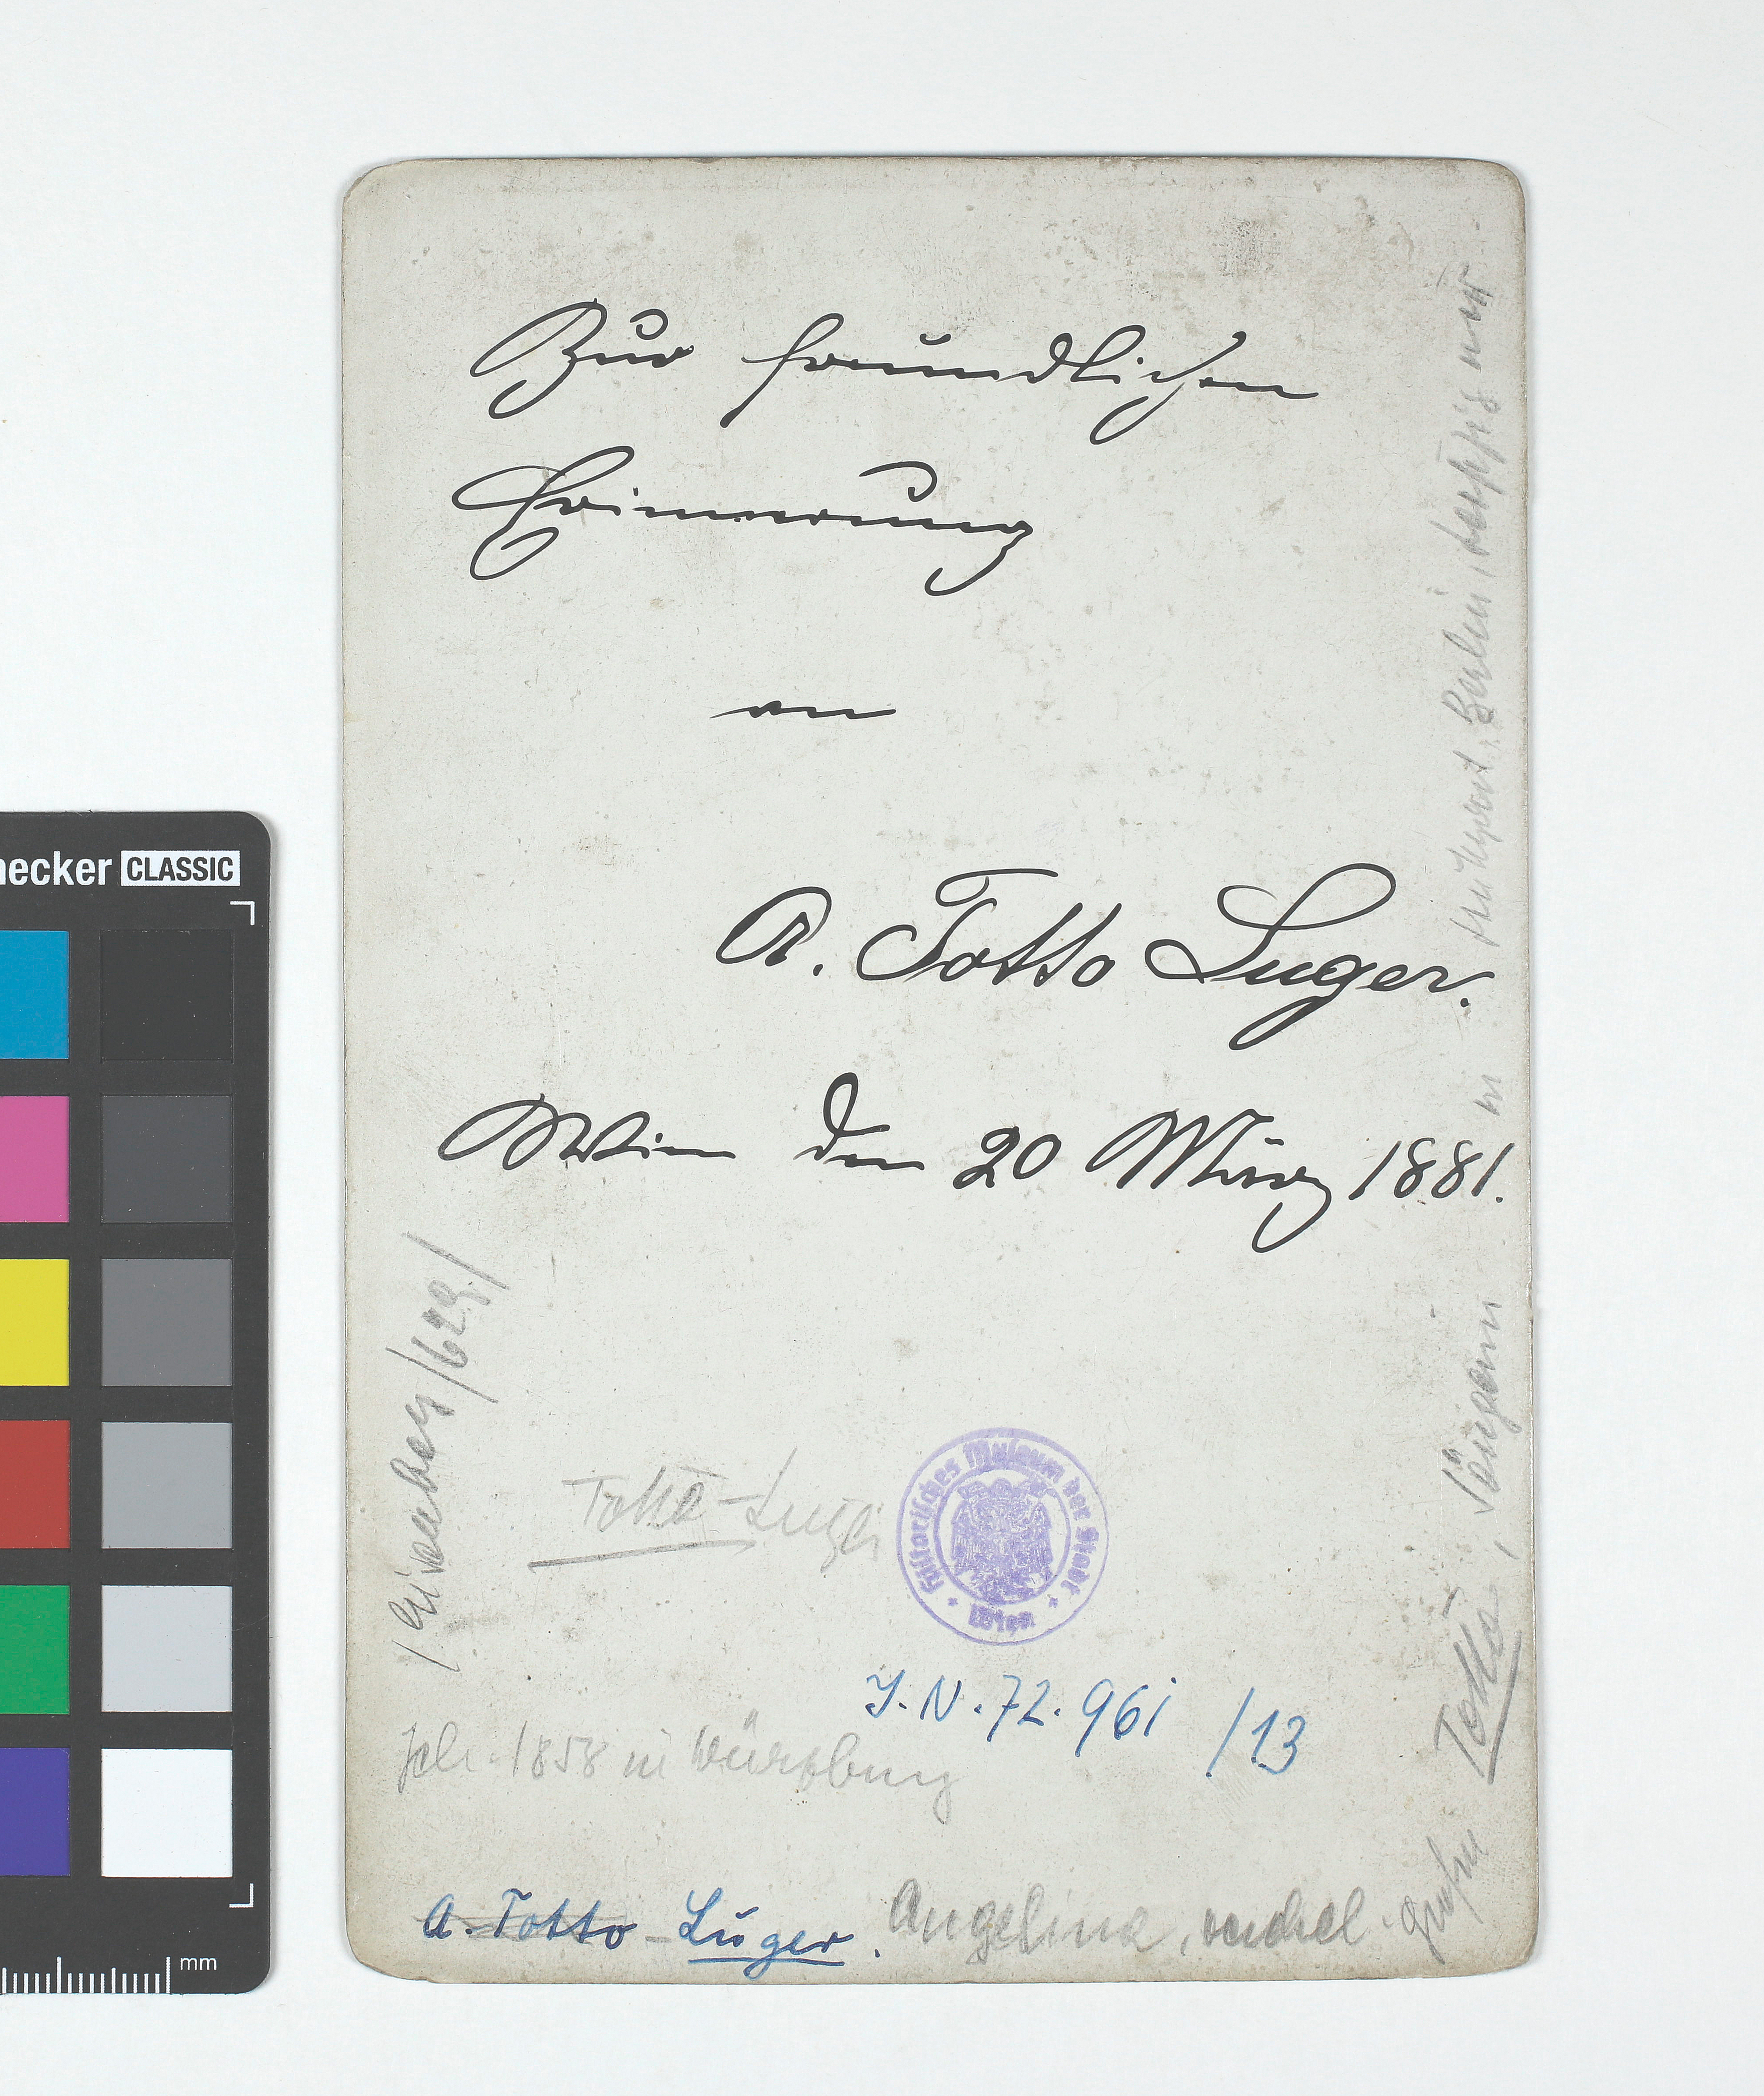 Zur freundlichen
Erinnerung
an
A. Totto Luger.
Wien den 20 März 1881.
/Eisenberg/629/
Totto-Luger
Historisches Museum der Stadt
Wien
J.N. 72.961 /13
in Würzburg
A. Totto - Luger. Angelina,
Totto, Sängerin in
Berlin,
necker CLASSIC
mm